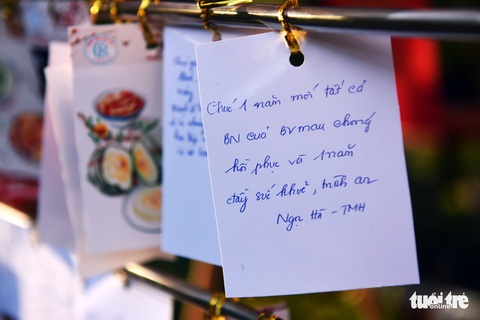 Chúc 1 năm mới tất cả
BN của BV mau chóng
hồi phục và 1 năm
đầy sức khoẻ, bình an
Ngọ Hà - TMH
tuổi trẻ
online